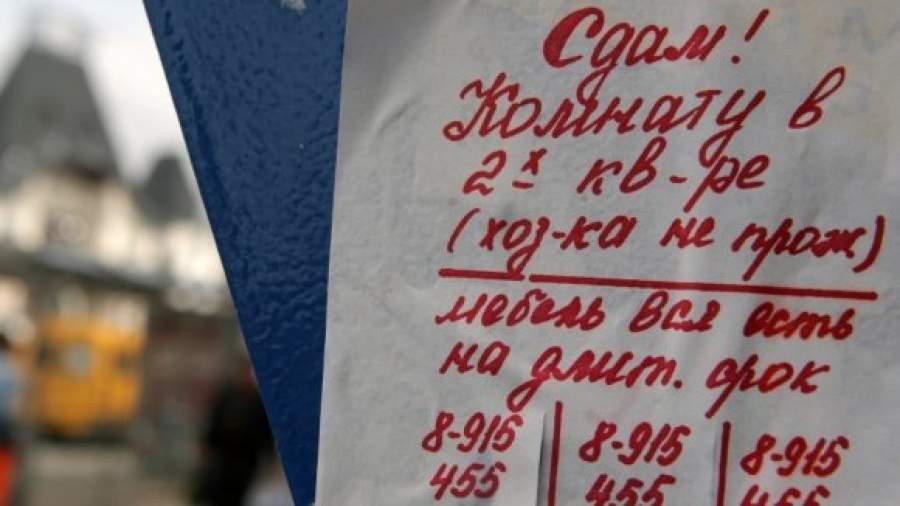 Сдам!
Комнату в
2х кв-ре
(хоз-ка не прож)
мебель вся есть
на длит. срок
8-915 8-915 8-915
455 455 455